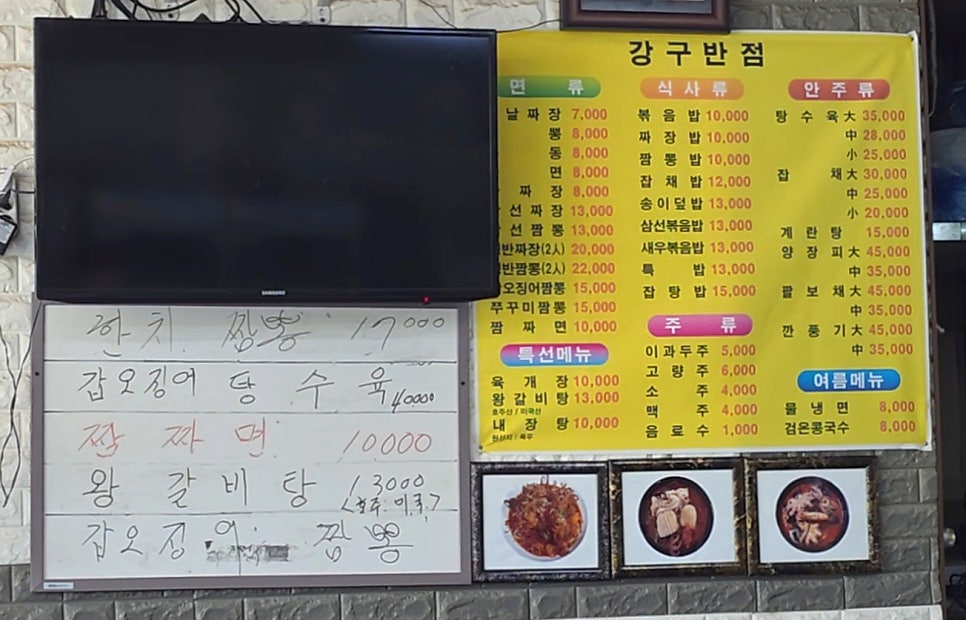 강구반점
면 류
날 짜 장 7,000
뽕 8,000
동 8,000
면 8,000
짜 장 8,000
선 짜 장 13,000
선 짬 뽕 13,000
반짜장(2인) 20,000
반짬뽕(2人) 22,000
오징어짬뽕 15,000
쭈꾸미짬뽕 15,000
짬 짜 면 10,000
특선메뉴
육 개 장 10,000
왕 갈 비 탕 13,000
호주산 / 미국산
내 장 탕 10,000
식 사 류
볶 음 밥 10,000
짜 장 밥 10,000
짬 뽕 밥 10,000
잡 채 밥 12,000
송 이 덮 밥 13,000
삼선볶음밥 13,000
새우볶음밥 13,000
특 밥 13,000
잡 탕 밥 15,000
주 류
이 과 두 주 5,000
고 량 주 6,000
소 주 4,000
맥 주 4,000
음 료 수 1,000
안 주 류
탕 수 육 大 35,000
中 28,000
小 25,000
잡 채 大 30,000
中 25,000
小 20,000
계 란 탕 15,000
양 장 피 大 45,000
中 35,000
팔 보 채 大 45,000
中 35,000
깐 풍 기 大 45,000
中 35,000
여름메뉴
물 냉 면 8,000
검은콩국수 8,000
SAMSUNG
한치 짬뽕 17000
갑오징어 탕 수 육 40000
짬 짜 면 10000
왕 갈 비 탕 13000
<호주. 미국.>
갑오징어 짬뽕